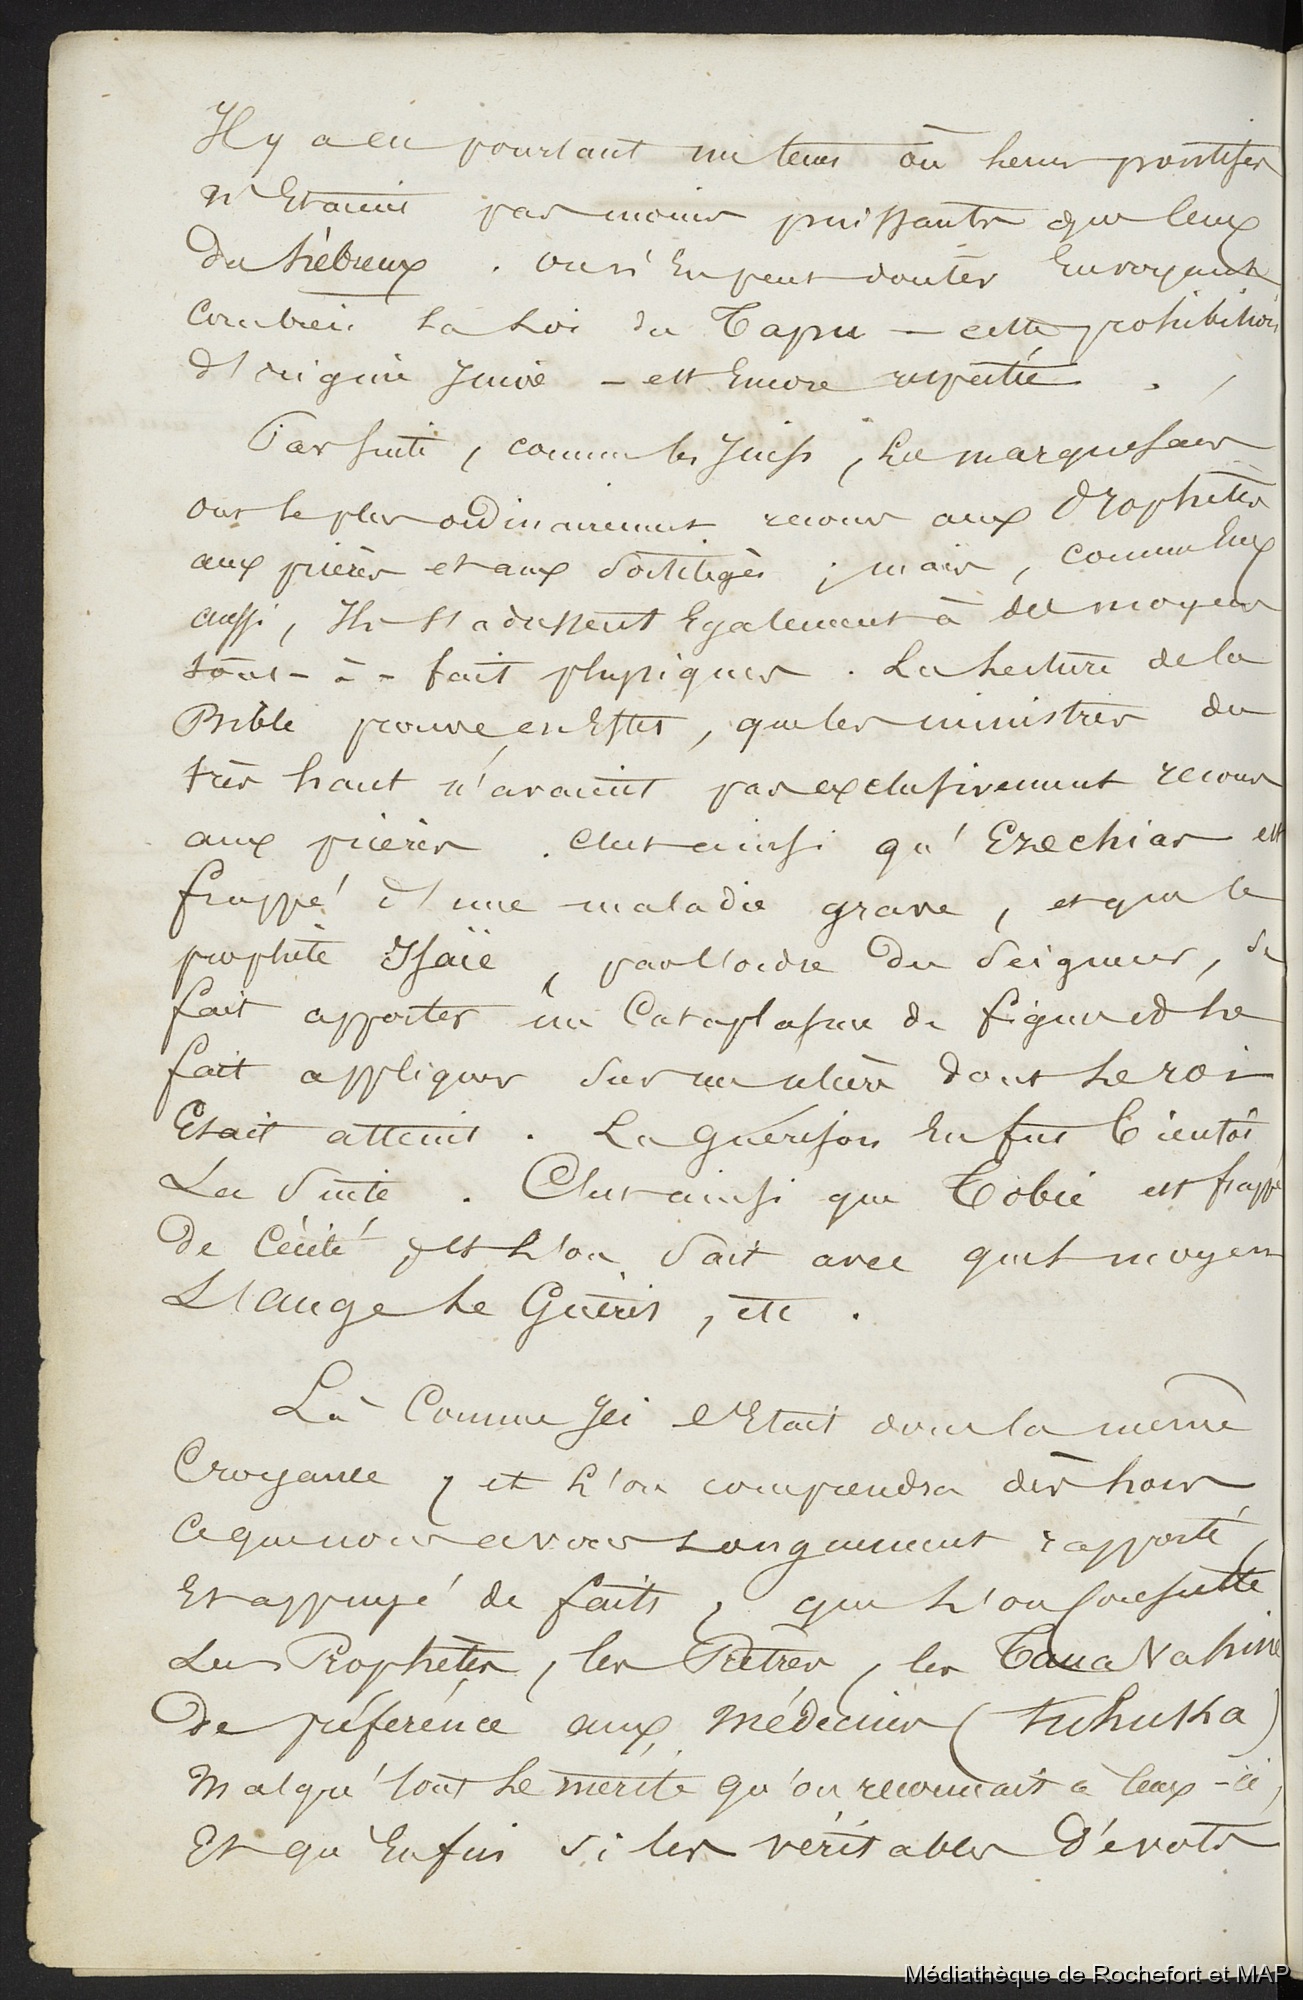 Il y a eu pourtant un tems où leurs pontifes
n'Etaient pas moins puissants que Ceux
Des hébreux . on n'En peut douter En voyant
Combien La Loi du Tapu — cette prohibition
d'origine Juive — est Encore respectée .
Par suite , comme les Juifs , Les marquesans
ont le plus ordinairement recours aux Prophètes
aux prières et aux Sortilèges ; mais , comme Eux
aussi , Ils s'adressent Egalement à des moyens
tout-à-fait physiques . La Lecture de la
Bible prouve en Effet , que les ministres du
très haut n'avaient pas exclusivement recours
aux prières . C'est ainsi qu'Ezechias est
frappé d'une maladie grave , et que le
prophète Isaïe , par l'ordre du Seigneur , se
fait apporter un Cataplasme de figues et le
fait appliquer sur un ulcère dont Le roi
Etait atteint . La guérison En fut bientôt
La Suite . C'est ainsi que Tobie est frappé
De Cécité , et L'on Sait avec quel moyen
L'ange Le Guérit , etc .
Là Comme Ici C'Etait donc la même
Croyance , et L'on comprendra dès Lors
Ce que nous avons Longuement rapporté ,
Et appuyé de faits , que L'on Consulte
Les Prophètes , les Prêtres , les Taua Vahine
De préférence aux Médecins ( tuhuka )
Malgré tout Le mérite qu'on reconnait à Ceux-ci ,
Et qu'Enfin si les véritables Dévots
Médiathèque de Rochefort et MAP